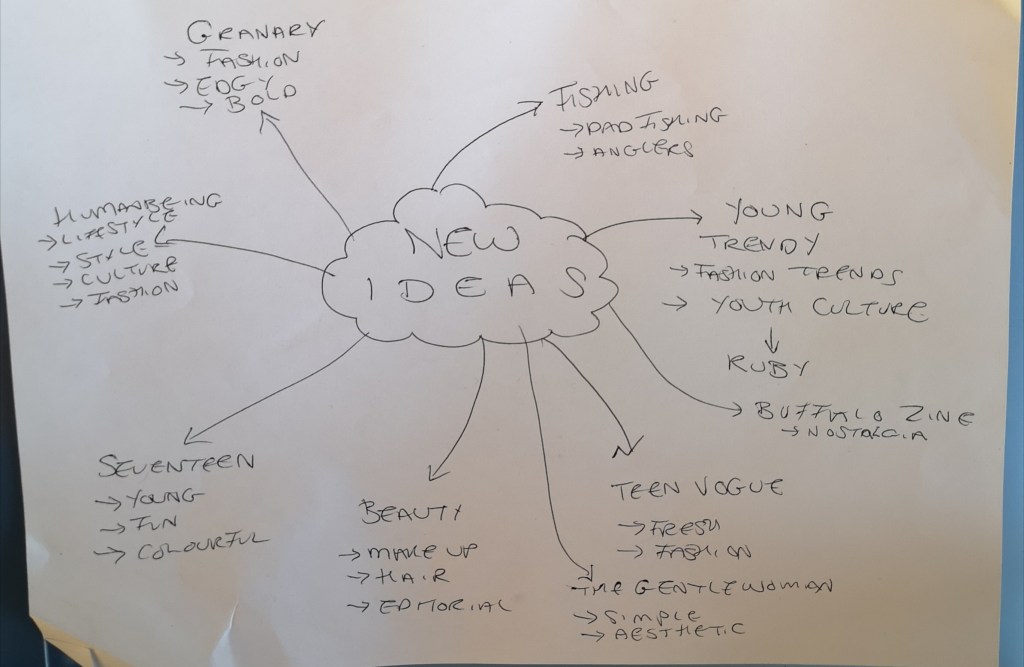 GRANARY
→ FASHION
→ EDGY
→ BOLD
FISHING
→ DAD FISHING
→ ANGLERS
HUMANBEING
→ LIFESTYLE
→ STYLE
→ CULTURE
→ FASHION
NEW
IDEAS
YOUNG
TRENDY
→ FASHION TRENDS
→ YOUTH CULTURE
↓
RUBY
BUFFALO ZINE
→ NOSTALGIA
SEVENTEEN
→ YOUNG
→ FUN
→ COLOURFUL
BEAUTY
→ MAKE UP
→ HAIR
→ EDITORIAL
TEEN VOGUE
→ FRESH
→ FASHION
THE GENTLEWOMAN
→ SIMPLE
→ AESTHETIC